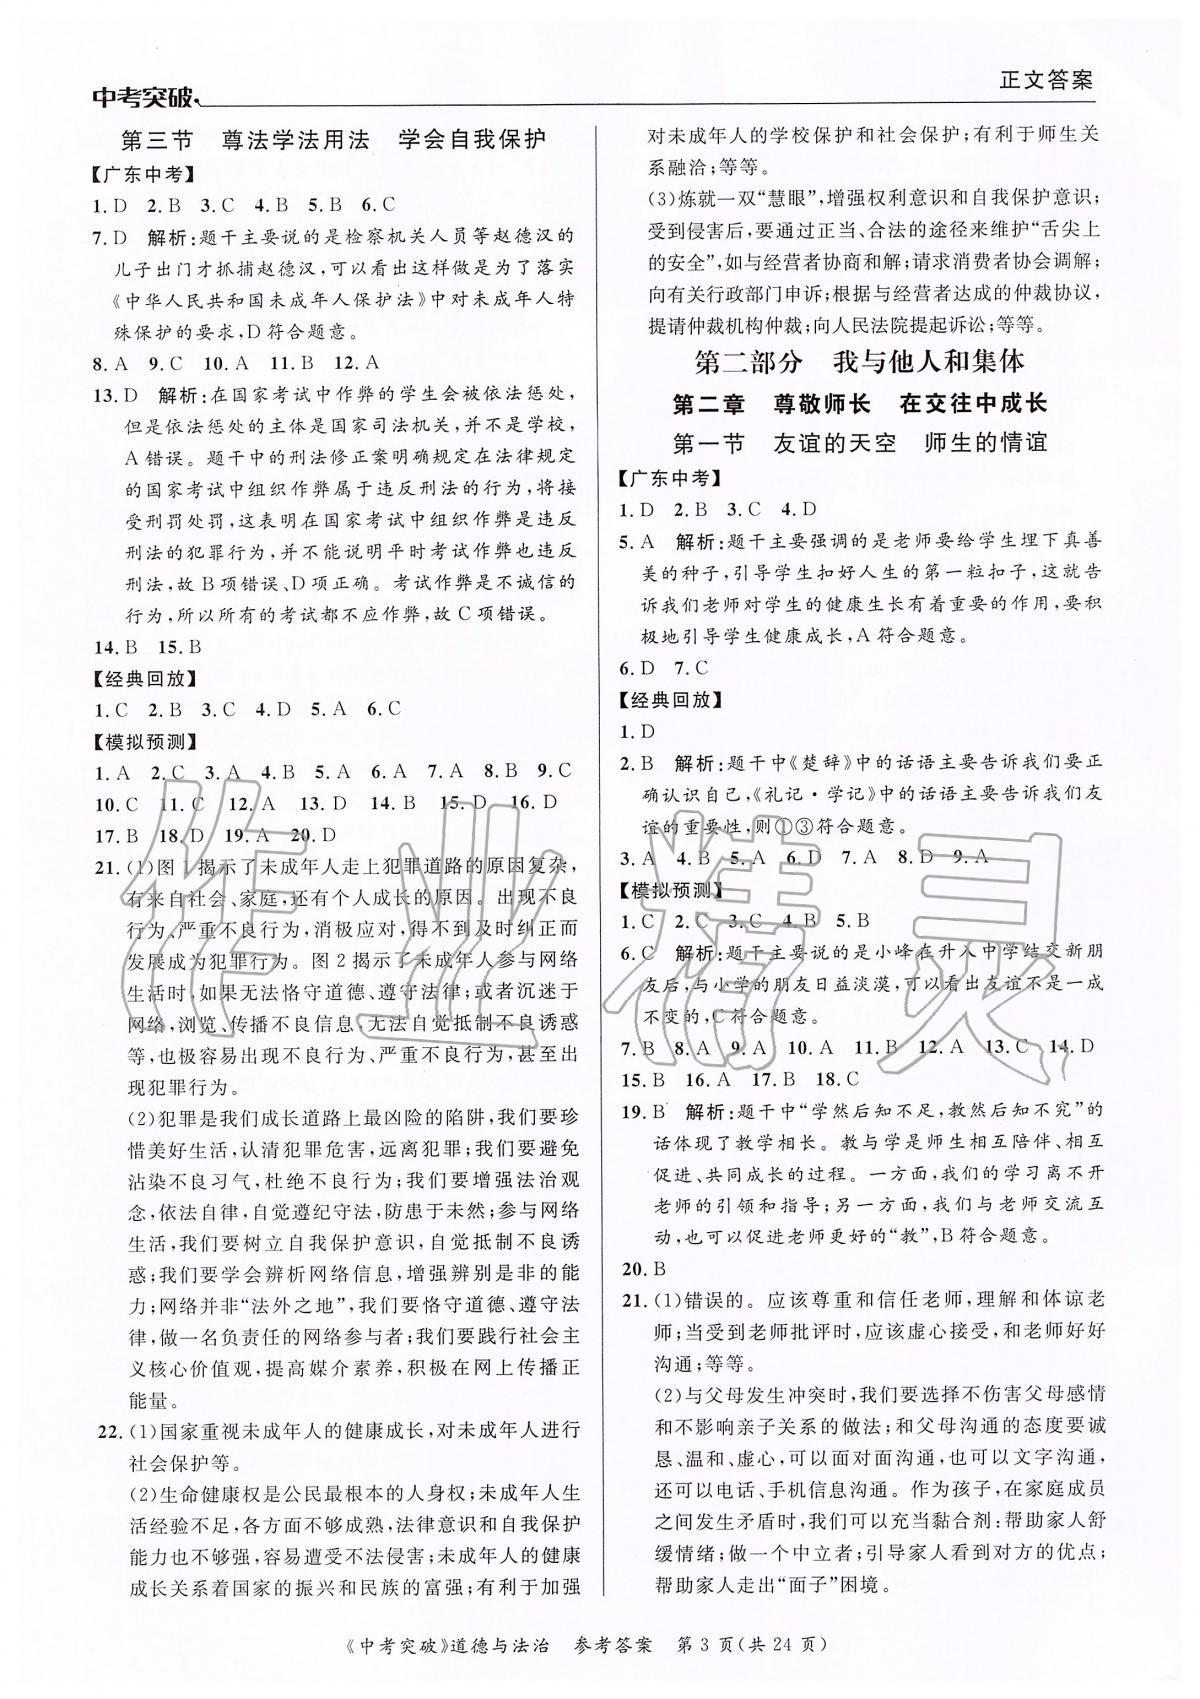 中考突破
正文答案
第三节 尊法学法用法 学会自我保护
【广东中考】
1. D 2. B 3. C 4. B 5. B 6. C
7. D 解析:题干主要说的是检察机关人员等赵德汉的
儿子出门才抓捕赵德汉,可以看出这样做是为了落实
《中华人民共和国未成年人保护法》中对未成年人特
殊保护的要求,D符合题意。
8. A 9. C 10. A 11. B 12. A
13. D 解析:在国家考试中作弊的学生会被依法惩处,
但是依法惩处的主体是国家司法机关,并不是学校,
A错误。题干中的刑法修正案明确规定在法律规定
的国家考试中组织作弊属于违反刑法的行为,将接
受刑罚处罚,这表明在国家考试中组织作弊是违反
刑法的犯罪行为,并不能说明平时考试作弊也违反
刑法,故B项错误、D项正确。考试作弊是不诚信的
行为,所以所有的考试都不应作弊,故C项错误。
14. B 15. B
【经典回放】
1. C 2. B 3. C 4. D 5. A 6. C
【模拟预测】
1. A 2. C 3. A 4. B 5. B 6. A 7. A 8. B 9. C
10. C 11. C 12. A 13. D 14. B 15. D 16. D
17. B 18. D 19. A 20. D
21. (1)图1揭示了未成年人走上犯罪道路的原因复杂,
有来自社会、家庭,还有个人成长的原因。出现不良
行为、严重不良行为,消极应对,得不到及时纠正而
发展成为犯罪行为。图2揭示了未成年人参与网络
生活时,如果无法恪守道德、遵守法律;或者沉迷于
网络,浏览、传播不良信息,无法自觉抵制不良诱惑
等,也极容易出现不良行为、严重不良行为,甚至出
现犯罪行为。
(2)犯罪是我们成长道路上最凶险的陷阱,我们要珍
惜美好生活,认清犯罪危害,远离犯罪;我们要避免
沾染不良习气,杜绝不良行为;我们要增强法治观
念,依法自律,自觉遵纪守法,防患于未然;参与网络
生活,我们要树立自我保护意识,自觉抵制不良诱
惑;我们要学会辨析网络信息,增强辨别是非的能
力;网络并非“法外之地”,我们要恪守道德、遵守法
律,做一名负责任的网络参与者;我们要践行社会主
义核心价值观,提高媒介素养,积极在网上传播正
能量。
22. (1)国家重视未成年人的健康成长,对未成年人进行
社会保护等。
(2)生命健康权是公民最根本的人身权;未成年人生
活经验不足,各方面不够成熟,法律意识和自我保护
能力也不够强,容易遭受不法侵害;未成年人的健康
成长关系着国家的振兴和民族的富强;有利于加强
对未成年人的学校保护和社会保护;有利于师生关
系融洽;等等。
(3)炼就一双“慧眼”,增强权利意识和自我保护意识;
受到侵害后,要通过正当、合法的途径来维护“舌尖上
的安全”,如与经营者协商和解;请求消费者协会调解;
向有关行政部门申诉;根据与经营者达成的仲裁协议,
提请仲裁机构仲裁;向人民法院提起诉讼;等等。
第二部分 我与他人和集体
第二章 尊敬师长 在交往中成长
第一节 友谊的天空 师生的情谊
【广东中考】
1. D 2. B 3. C 4. D
5. A 解析:题干主要强调的是老师要给学生埋下真善
美的种子,引导学生扣好人生的第一粒扣子,这就告
诉我们老师对学生的健康生长有着重要的作用,要积
极地引导学生健康成长,A符合题意。
6. D 7. C
【经典回放】
1. D
2. B 解析:题干中《楚辞》中的话语主要告诉我们要正
确认识自己,《礼记·学记》中的话语主要告诉我们友
谊的重要性,则①③符合题意。
3. A 4. B 5. A 6. D 7. A 8. D 9. A
【模拟预测】
1. C 2. C 3. C 4. B 5. B
6. C 解析:题干主要说的是小峰在升入中学结交新朋
友后,与小学的朋友日益淡漠,可以看出友谊不是一成
不变的,C符合题意。
7. B 8. A 9. A 10. A 11. B 12. A 13. C 14. D
15. B 16. A 17. B 18. C
19. B 解析:题干中“学然后知不足,教然后知不究”的
话体现了教学相长。教与学是师生相互陪伴、相互
促进、共同成长的过程。一方面,我们的学习离不开
老师的引领和指导;另一方面,我们与老师交流互
动,也可以促进老师更好的“教”,B符合题意。
20. B
21. (1)错误的。应该尊重和信任老师,理解和体谅老
师;当受到老师批评时,应该虚心接受,和老师好好
沟通;等等。
(2)与父母发生冲突时,我们要选择不伤害父母感情
和不影响亲子关系的做法;和父母沟通的态度要诚
恳、温和、虚心,可以面对面沟通,也可以文字沟通,
还可以电话、手机信息沟通。作为孩子,在家庭成员
之间发生矛盾时,我们可以充当黏合剂:帮助家人舒
缓情绪;做一个中立者;引导家人看到对方的优点;
帮助家人走出“面子”困境。
作业精灵
《中考突破》道德与法治 参考答案 第3页(共24页)